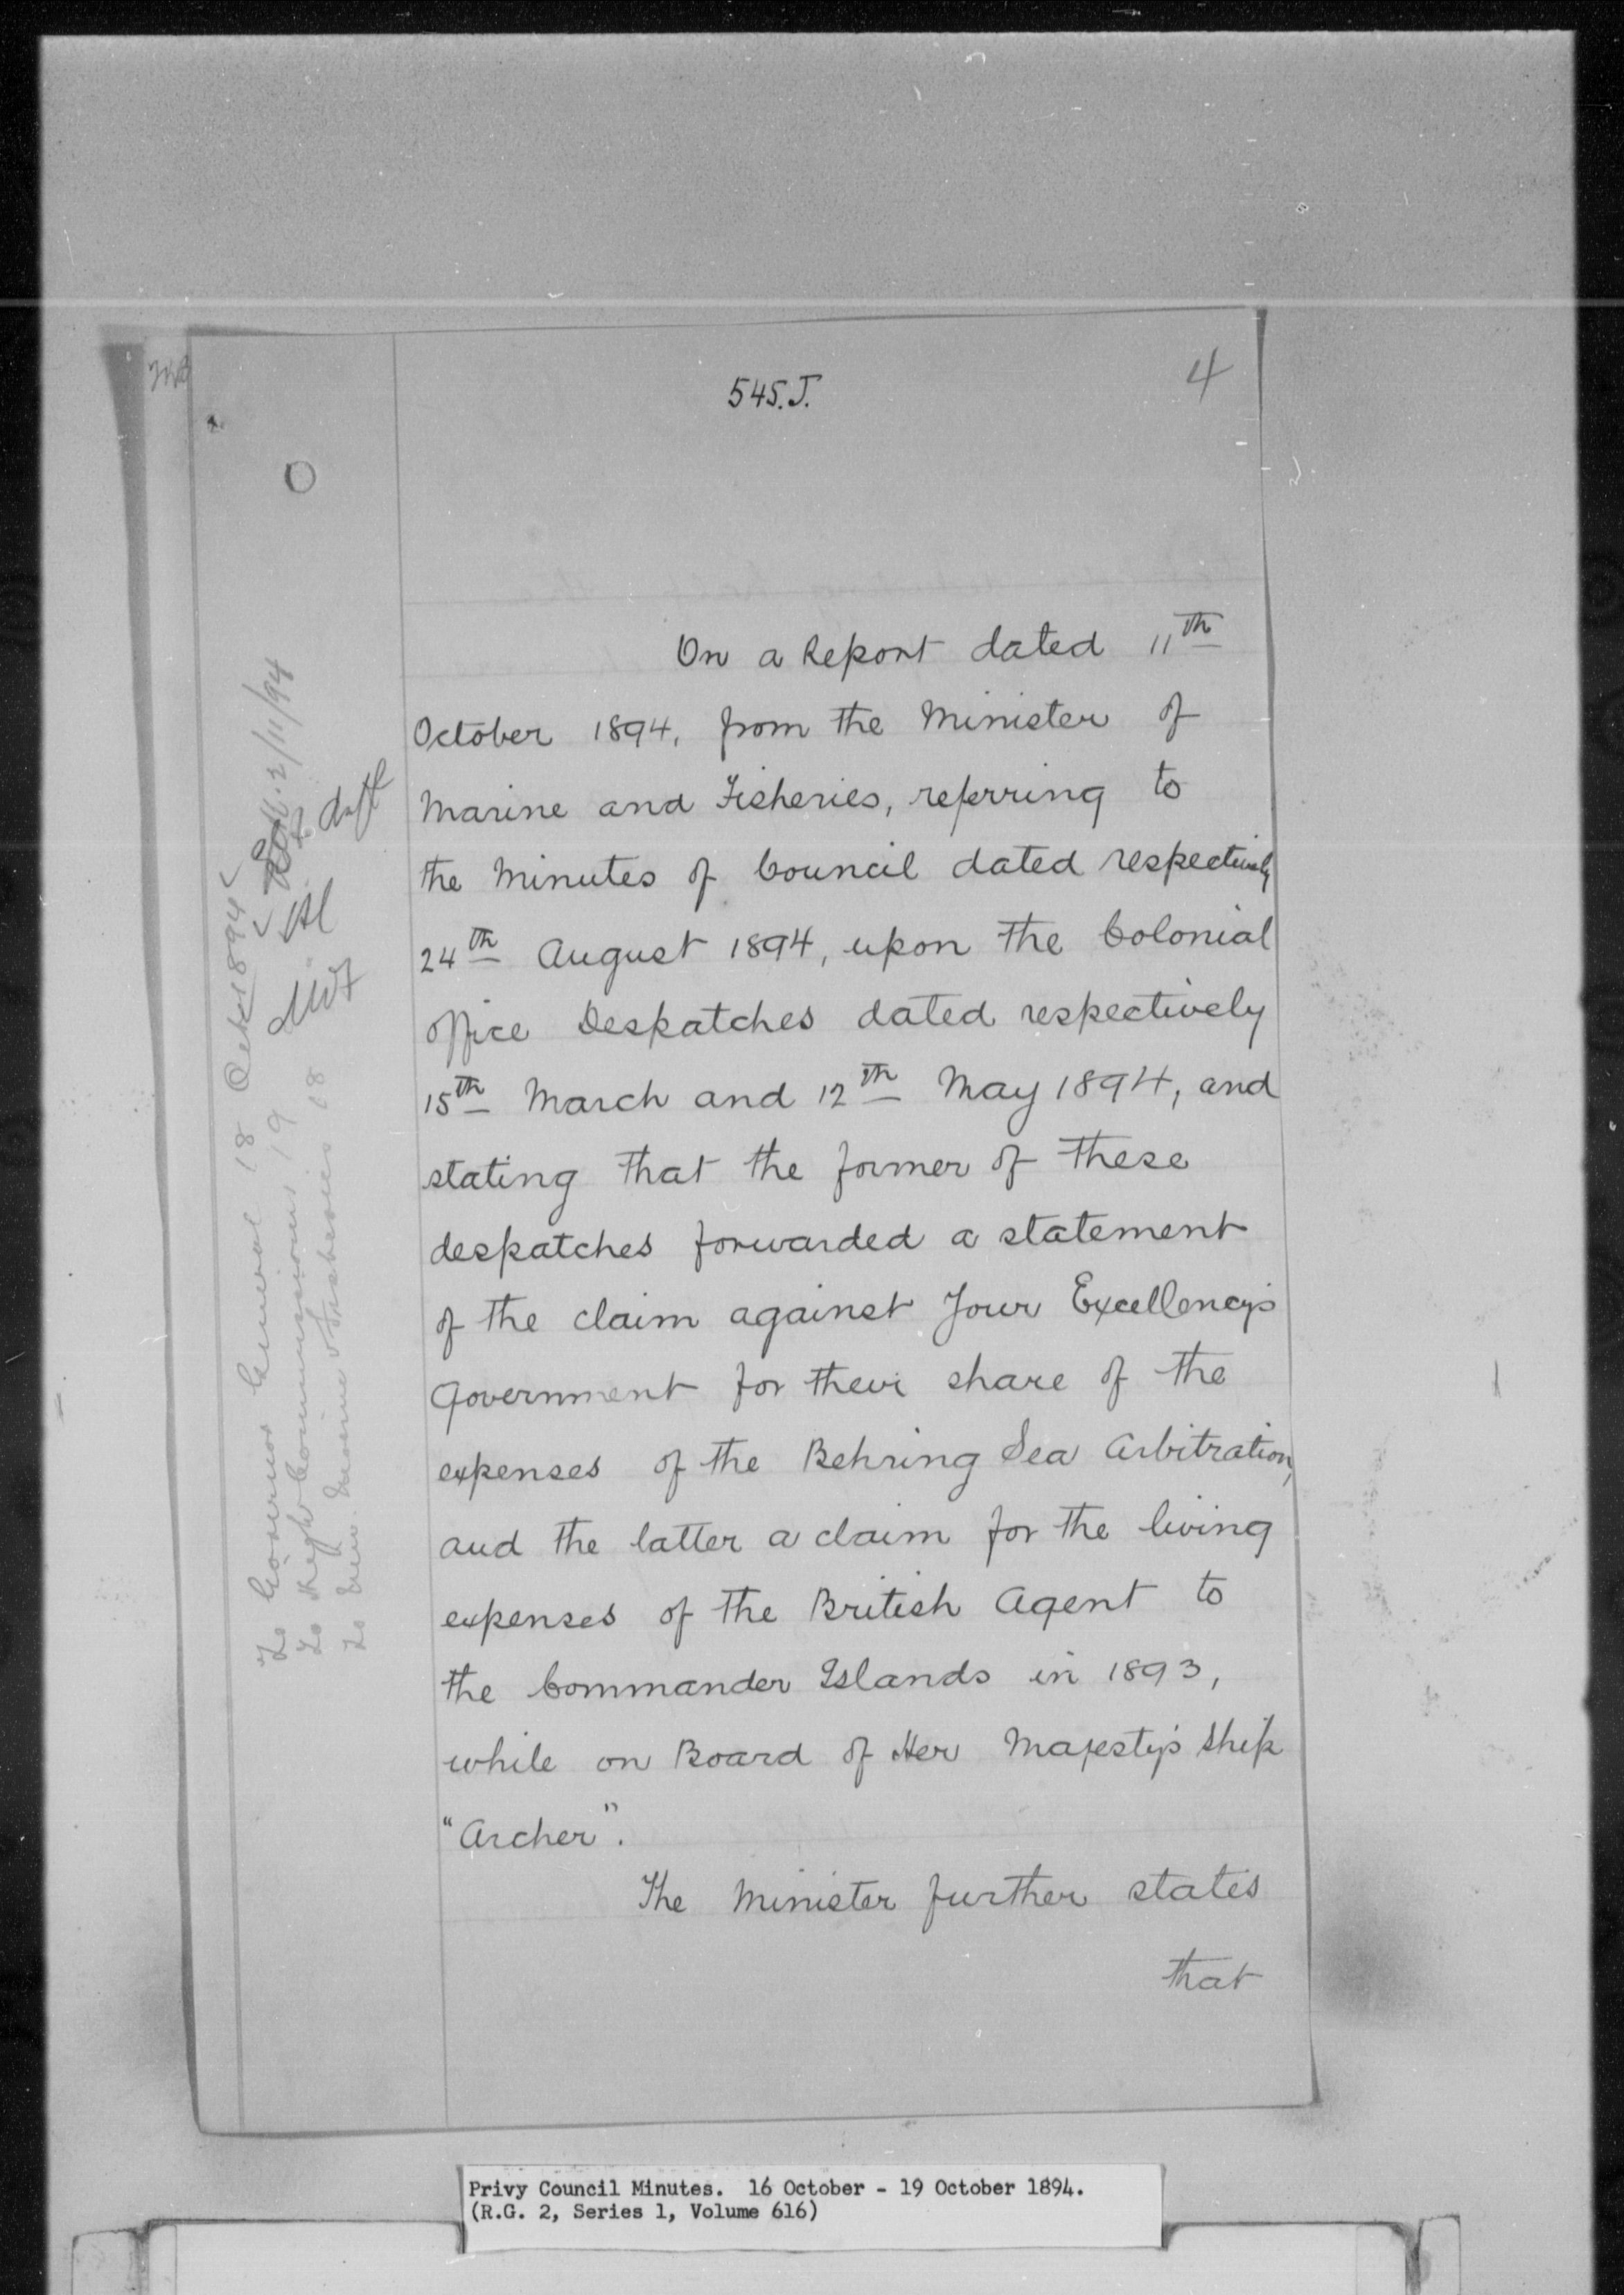 545.J.
4
On a Report dated 11th
October 1894, from the Minister of
Marine and Fisheries, referring to
the Minutes of Council dated respectively
24th August 1894, upon the Colonial
Office Despatches dated respectively
15th March and 12th May 1894, and
stating that the former of these
despatches forwarded a statement
of the claim against Your Excellency's
Government for their share of the
expenses of the Behring Sea Arbitration,
and the latter a claim for the living
expenses of the British Agent to
the Commander Islands in 1893,
while on Board of Her Majesty's Ship
"Archer".
The Minister further states
that
To Governor General 18 Octr 1894
To High Commissioner 19
To Min. Marine & Fisheries 18
2/11/94
Privy Council Minutes. 16 October - 19 October 1894.
(R.G. 2, Series 1, Volume 616)